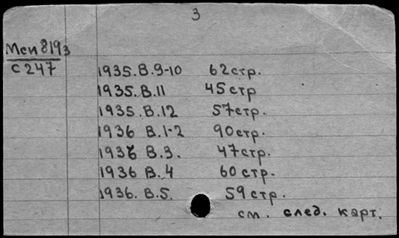 3
Мси 8193
С 247
1935. В.9-10 62стр.
1935. В.11 45стр
1935. В.12 57стр.
1936 В.1-2 90стр.
1936 В.3. 47стр.
1936 В.4 60стр.
1936. В.5. 59стр.
см. след. карт.